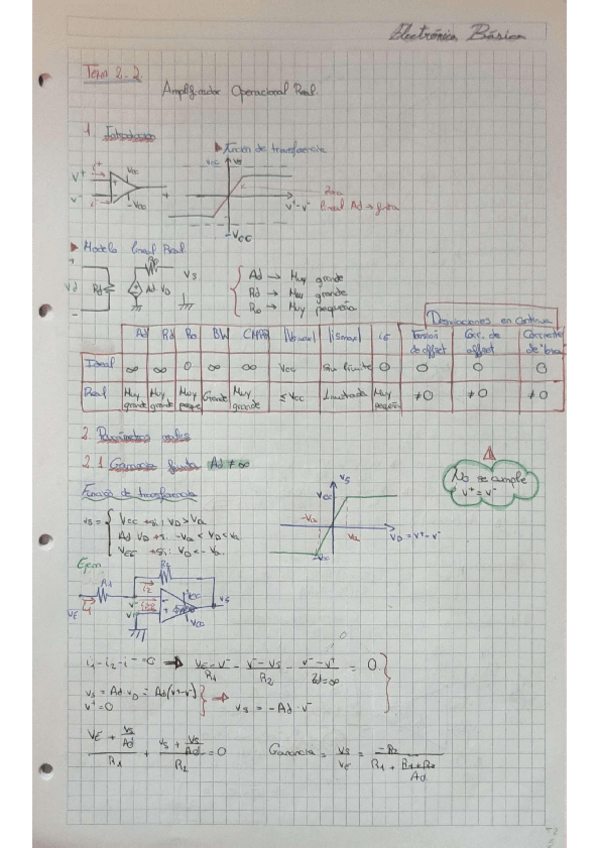 Electrónica Básica
Tema 2-2
Amplificador Operacional Real.
1. Introducción
▶ Función de transferencia
Vcc vs
V+ i+ Vcc
V- i- -Vcc
V+-V-
Zona lineal Ad → finita
-Vcc
▶ Modelo lineal Real
Vd Rd Ad VD Ro Vs
Ad → Muy grande
Rd → Muy grande
Ro → Muy pequeña
Desviaciones en continua
Ad Rd Ro BW CMRR |Vsmax| |ismax| Tensión de offset Corr. de offset Corriente de
Ideal ∞ ∞ 0 ∞ ∞ Vcc Sin límite 0 0 0 0
Real Muy grande Muy grande Muy peque Grande Muy grande ≤Vcc Limitada Muy pequeña ≠0 ≠0 ≠0
2. Parámetros reales
2.1 Ganancia finita Ad ≠ ∞
No se cumple
V+ = V-
Función de transferencia
vs = { Vcc si: VD > Va
Ad VD si -Va < VD < Va
VEE si: VD < -Va
vs
Vcc
-Va
Va
VD = V+-V-
-Vcc
Ejem
R2
R1 i2 Vcc
VE i1 V- Vs
V+ Vcc
i1 - i2 - i- = 0 → VE - V- / R1 - V- - Vs / R2 - V- - V+ / Zd=∞ = 0
vs = Ad · vD = Ad (v+-v-)
v+ = 0
→ vs = -Ad · v-
VE + Vs/Ad / R1 + Vs + Vs/Ad / R2 = 0
Ganancia = Vs / VE = -R2 / R1 + R1+R2 / Ad